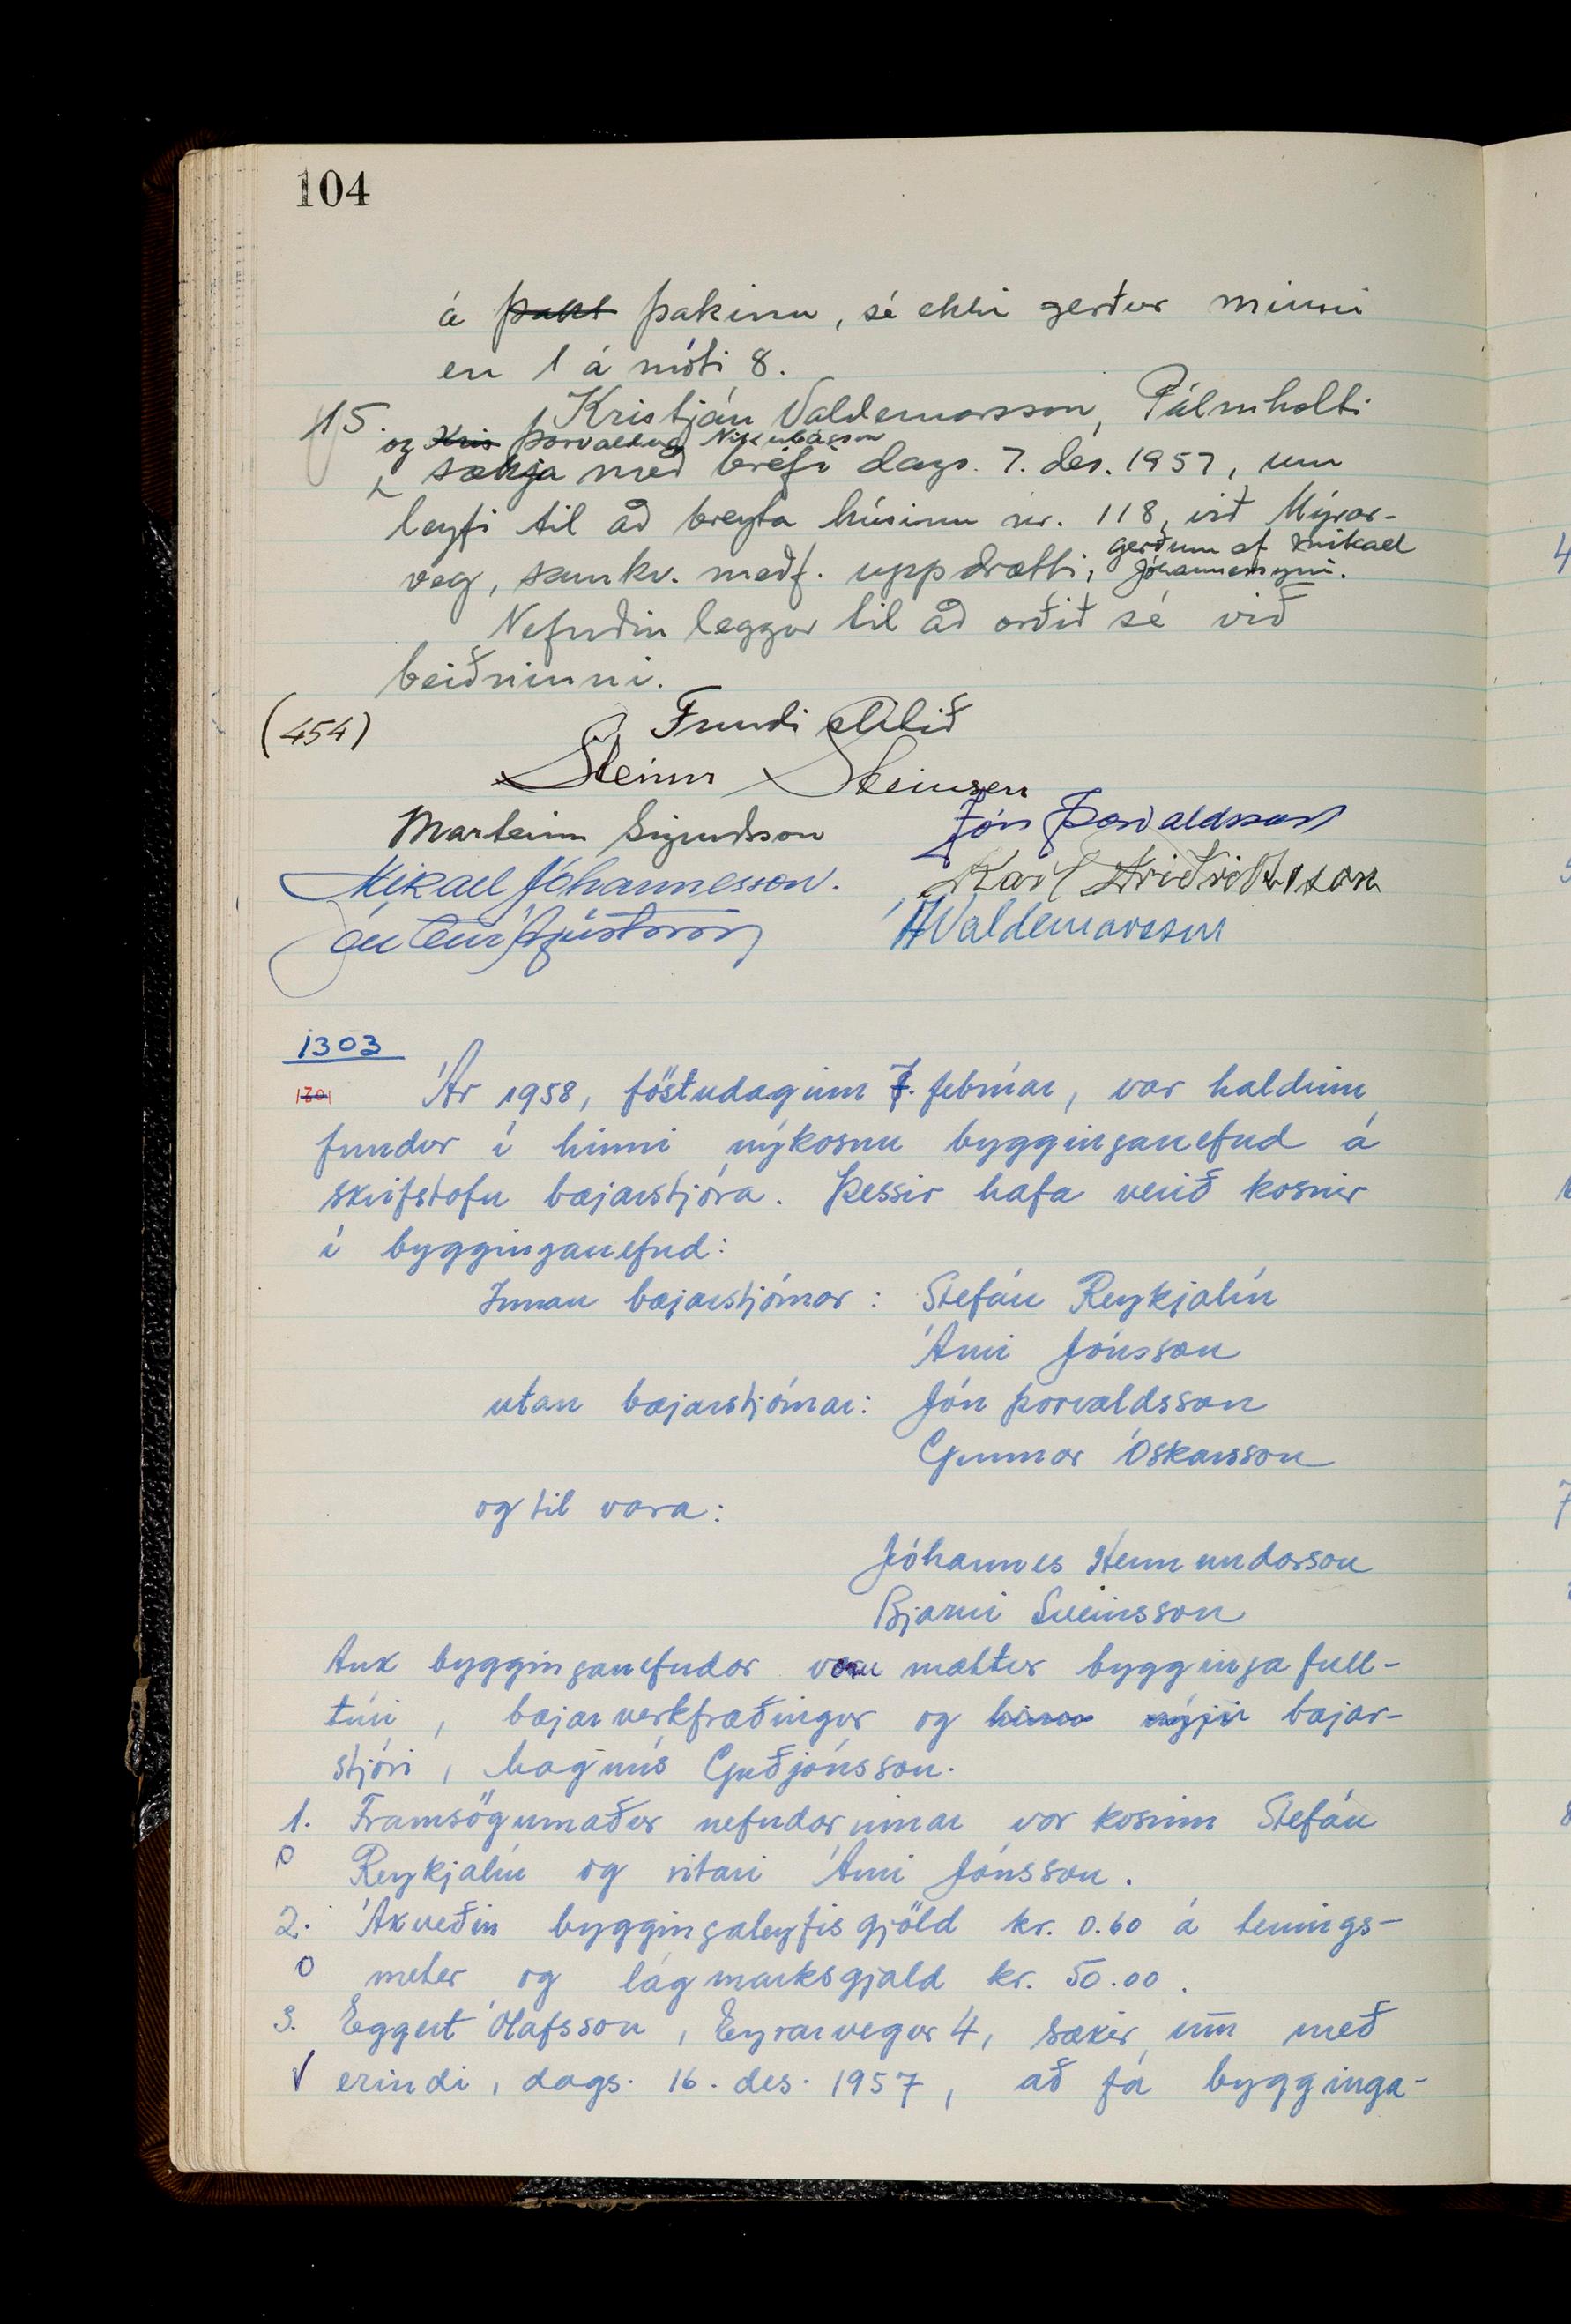 104
á þakt þakinu, sé ekki gerður minni
en 1 á móti 8.
15. Kristján Valdemarsson, Pálmholti
og Kris Þorvaldur Nikulásson
sækja með bréfi dags. 7. des. 1957, um
leyfi til að breyta húsinu nr. 118, við Mýrar-
veg, samkv. meðf. uppdrætti, gerðum af Mikael
Jóhannessyni.
Nefndin leggur til að orðið sé við
beiðninni.
(454)
Fundi slitið
Steinn Steinsen
Marteinn Sigurðsson Jón Þorvaldsson
Mikael Jóhannesson. Karl Friðriksson
Valdemarsson
1303
1301 Ár 1958, föstudaginn 7. febrúar, var haldinn
fundur í hinni nýkosnu bygginganefnd á
skrifstofu bæjarstjóra. Þessir hafa verið kosnir
í bygginganefnd:
Innan bæjarstjórnar: Stefán Reykjalín
Árni Jónsson
utan bæjarstjórnar: Jón Þorvaldsson
Gunnar Óskarsson
og til vara:
Jóhannes Hermundarson
Bjarni Sveinsson
Auk bygginganefndar voru mættir bygginga full-
trúi, bæjarverkfræðingur og hinn nýji bæjar-
stjóri, Magnús Guðjónsson.
1. Framsögumaður nefndarinnar var kosinn Stefán
0 Reykjalín og ritari Árni Jónsson.
2. Ákveðin byggingaleyfisgjöld kr. 0.60 á tenings-
0 meter og lágmarksgjald kr. 50.00.
3. Eggert Ólafsson, Eyrarvegur 4, sækir um með
√ erindi, dags. 16. des. 1957, að fá bygginga-